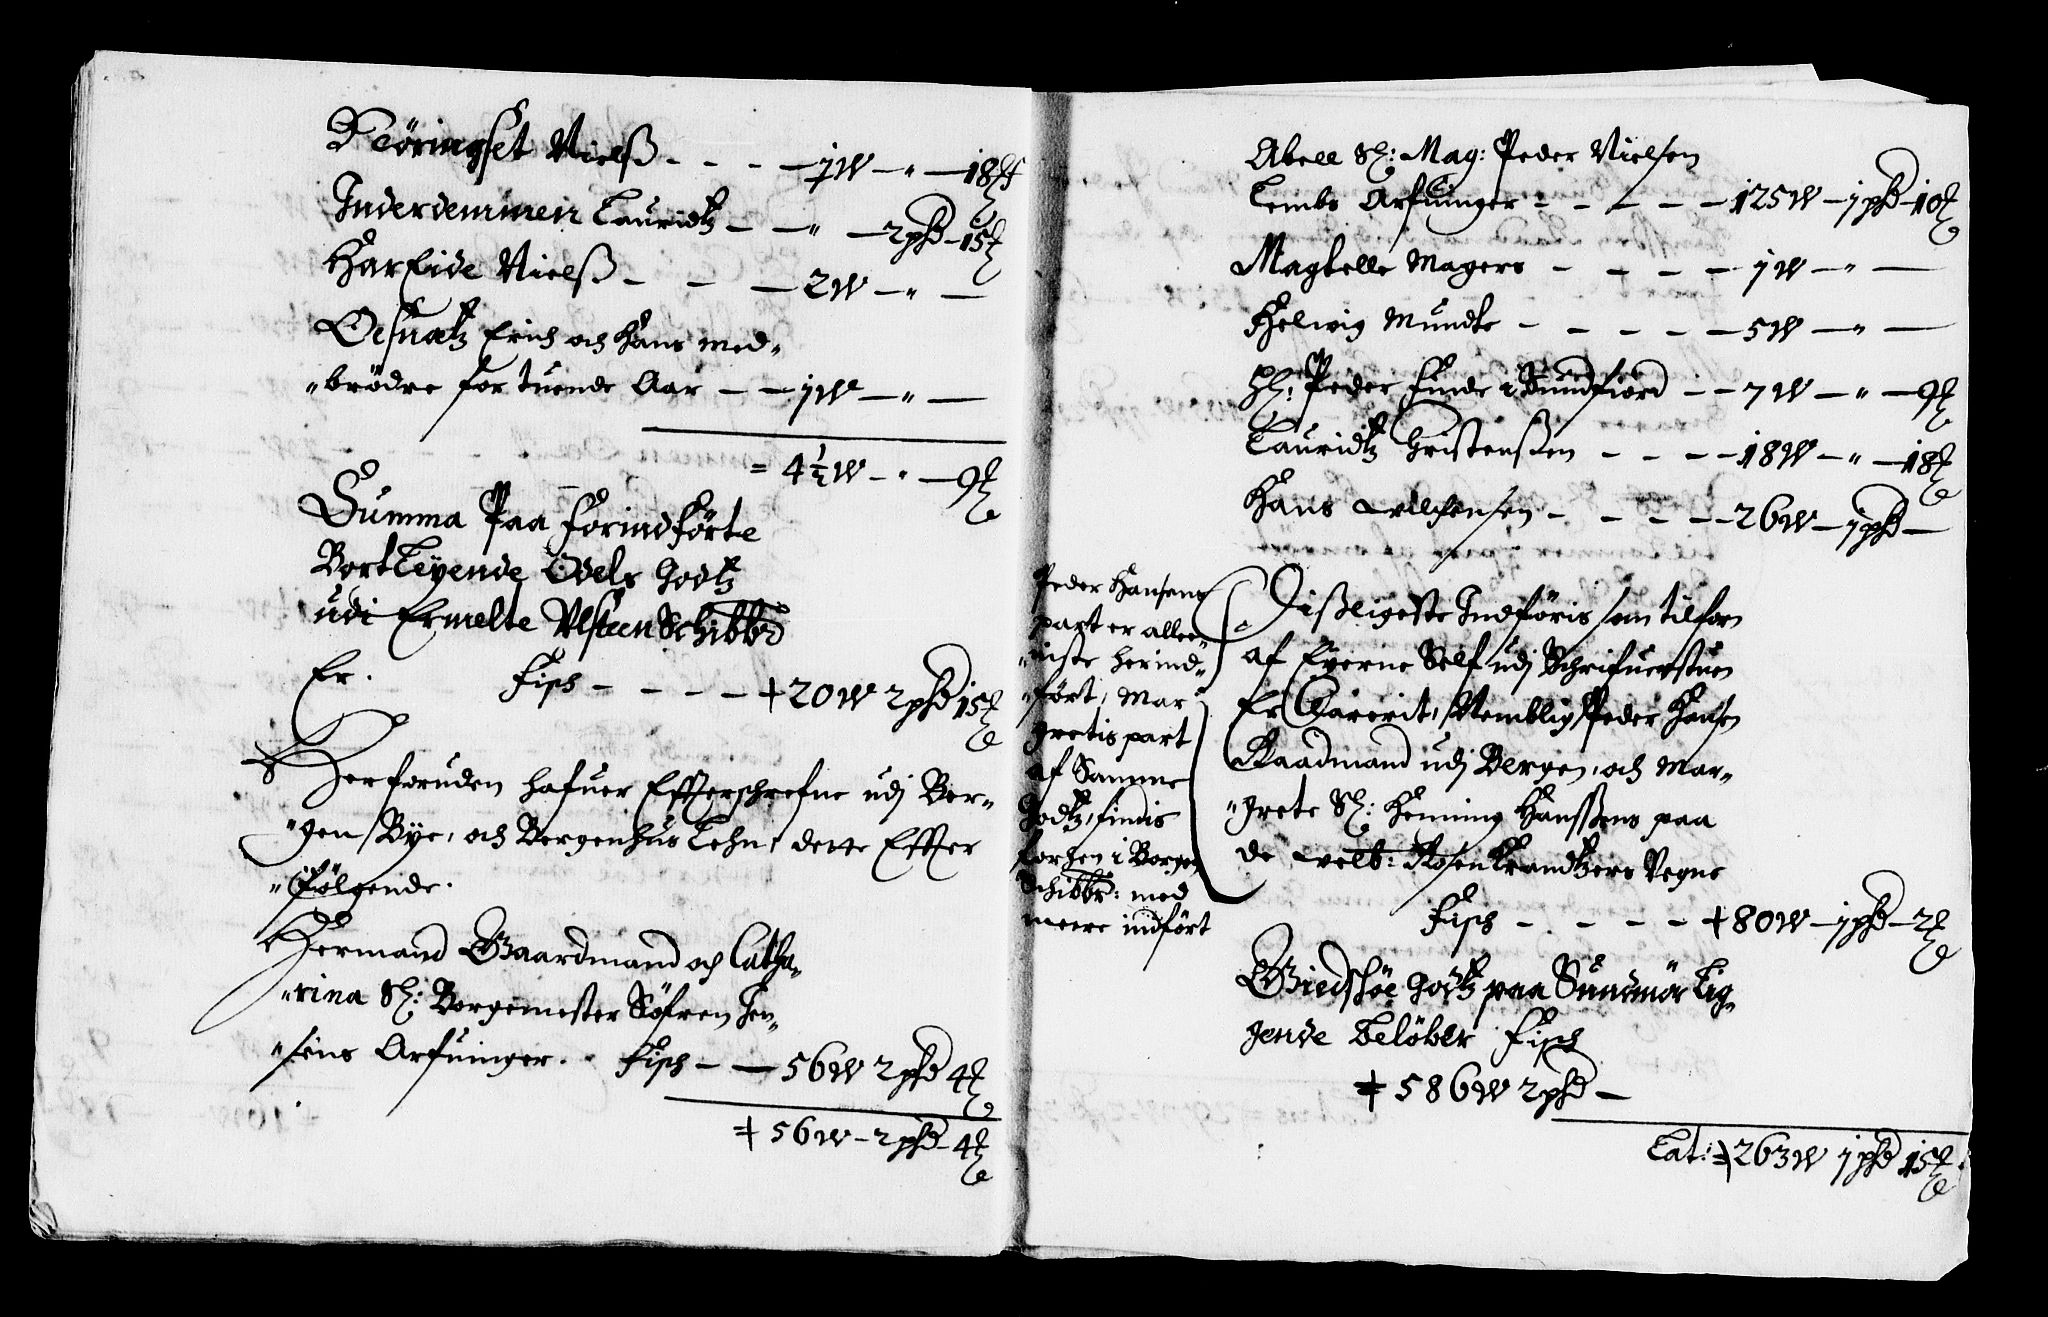 Nöringset Nielß - - - - 1 W - " - 18 ℔
Inderdemmen Lauridtz - - " - 2 pħd - 15 ℔
Hareide Nielß - - - 2 W - " -
Oesnætz Erich och Hans med-
"brödre for tuende Aar - - 1 W - " -
= 4 ½ W - " - 9 ℔
Summa Paa Forindförte
Bortleyende Odels Godtz
udi Ermelte Ulsteen Schibbrd
Er. Fisch - - - - + 20 W 2 pħd 15 ℔
Herforuden hafuer Effterschrefne udj Ber-
"gen Bye, och Bergenhus Lehn, dette Effter
"fölgende.
Hermand Gaardmand och Catha-
"rina Sl: Borgemester Söfren Jen-
"sens Arfuinger. Fisch - - 56 W 2 pħd 4 ℔
+ 56 W - 2 pħd - 4 ℔
Abell Sl: Mag: Peder Nielsen
Lembs Arfuinger - - - - - 125 W - 1 pħd - 10 ℔
Magdelle Magers - - - - 1 W - " -
Helwig Mundte - - - - - 5 W - " -
Hl: Peder Finde i Sundfiord - - 7 W - " - 9 ℔
Lauridtz Christenßen - - - - 18 W - " - 18 ℔
Hans Willumsen - - - - - 26 W - 1 pħd -
Peder Hansens
part er allee-
"niste herind-
"fört, Mar-
gretis part
af Samme
Godtz, findis
forhen i Borgen
Schibbr: med
meere indfört
Dißligeste Indföris som tilforn
af Eyerne Self udj Schrifuerstuen
Er Clarerit, Nemblig Peder Hansen
Raadmand udj Bergen, och Mar-
"grete Sl: Henning Hanssens paa
de welb: Rosenkrandtzers Vegne
Fisch - - - - - + 80 W - 1 pħd - 2 ℔
Giedsköe Godtz paa Sundmör Lig-
gende Belöber Fisch
+ 586 W 2 pħd -
Lat: + 263 W 1 pħd 15 ℔